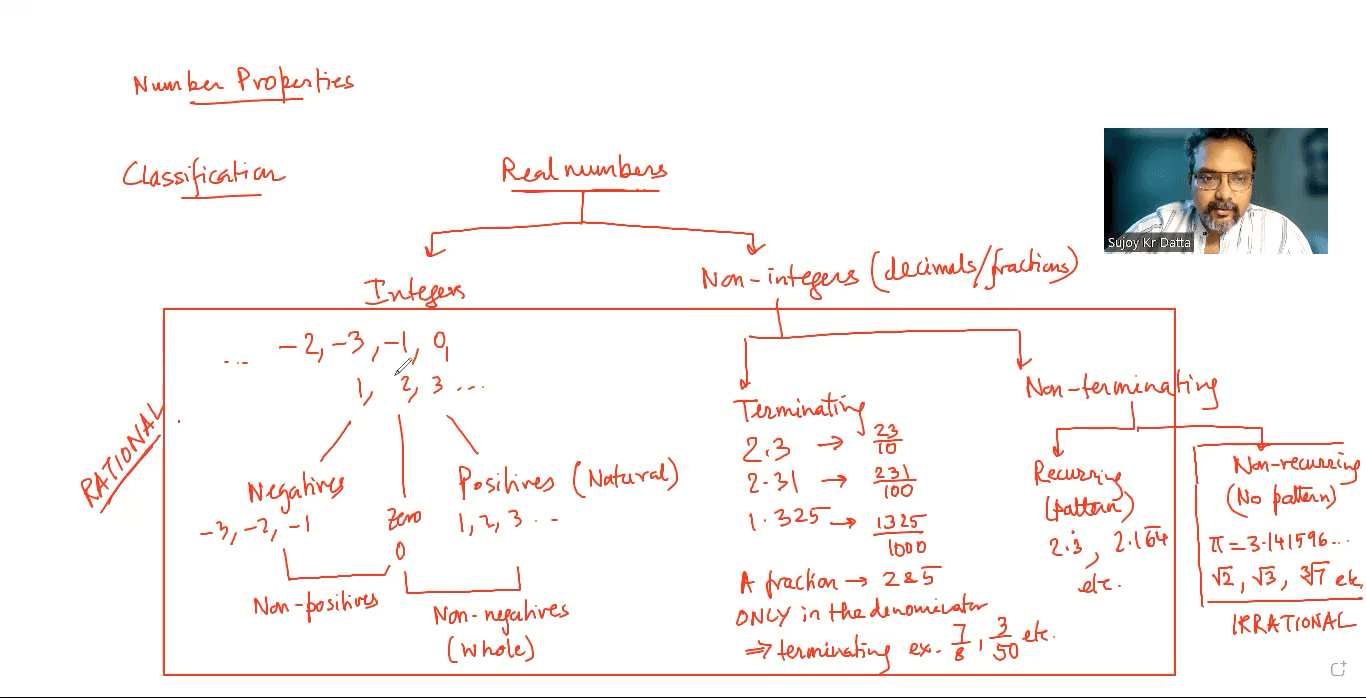 Number Properties
Classification
Real numbers
Sujoy Kr Datta
Integers
Non-integers (decimals/fractions)
... -2, -3, -1, 0,
1, 2, 3 ...
RATIONAL
Negatives
-3, -2, -1
Zero
0
Positives (Natural)
1, 2, 3 ...
Non-positives
Non-negatives
(whole)
Terminating
2.3 → 23/10
2.31 → 231/100
1.325 → 1325/1000
A fraction → 2&5
ONLY in the denominator
⇒ terminating ex. 7/8, 3/50 etc.
Non-terminating
Recurring
(pattern)
2.3̇, 2.16̅4̅
etc.
Non-recurring
(No pattern)
π = 3.141596...
√2, √3, ∛7 etc
IRRATIONAL